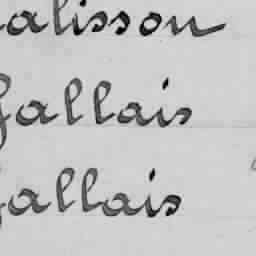 alisson
Gallais
Gallais